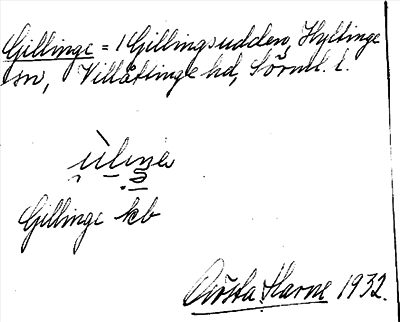 Gillinge = 1 Gillingsudden, Hyltinge
sn, Villåttinge hd, Sörml. l.
Gillinge kb
Gösta Harne 1932.